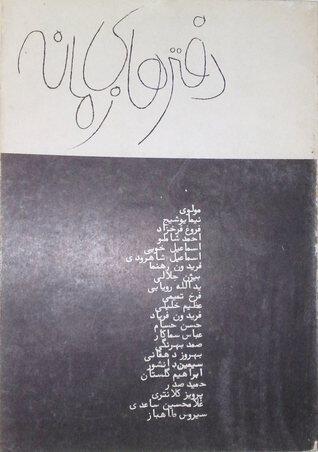 دفترهای زمانه
مولوی
نیما یوشیج
فروغ فرخزاد
احمد شاملو
اسماعیل خویی
اسماعیل شاهرودی
فریدون رهنما
بیژن جلالی
یدالله رویایی
فرخ تمیمی
عظیم خلیلی
فریدون فریاد
حسن حسام
عباس سماکار
صمد بهرنگی
بهروز دهقانی
سیمین دانشور
ابراهیم گلستان
حمید صدر
پرویز کلانتری
غلامحسین ساعدی
سیروس طاهباز